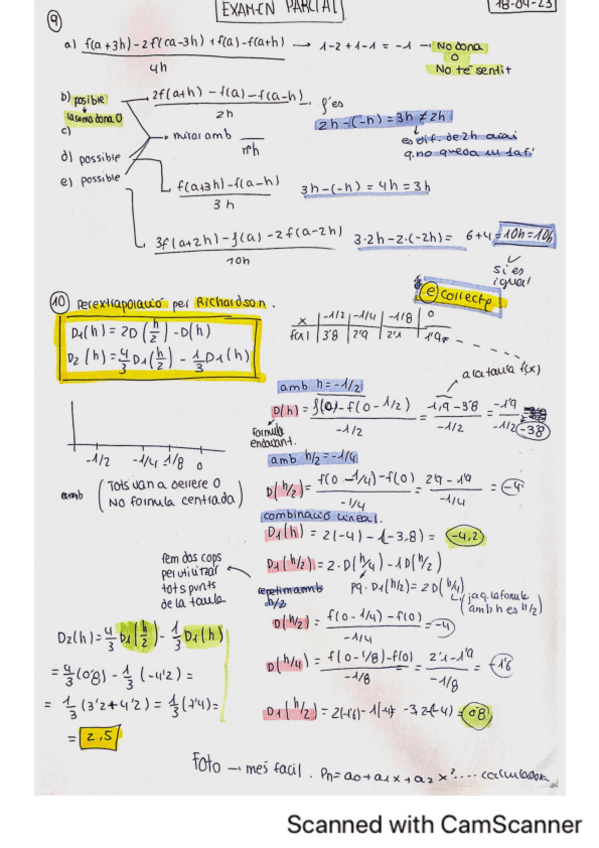 EXAMEN PARCIAL
18-04-23
9
a) f(a+3h)-2f(a-3h)+f(a)-f(a+h) / 4h → 1-2+1-1 = -1 → No dona
0
No té sentit
b) posible
la suma dona 0
2f(a+h) - f(a) - f(a-h) / 2h
2h-(-h) = 3h ≠ 2h
es dif. de 2h
c)
mirar amb
d) possible
e) possible
f(a+3h)-f(a-h) / 3h
3h-(-h) = 4h = 3h
3f(a+2h)-f(a)-2f(a-2h) / 10h
3·2h-2·(-2h) = 6+4 = 10h = 10h
si és
igual
e) correcte
10 per extrapolació per Richardson.
D1(h) = 2D(h/2) - D(h)
D2(h) = 4/3 D1(h/2) - 1/3 D1(h)
x | -1/2 | -1/4 | -1/8 | 0
f(x) | 3'8 | 2'9 | 2'1 | 1'9
a la taula f(x)
amb h=-1/2
D(h) = f(0)-f(0-1/2) / -1/2 = 1,9-3'8 / -1/2 = -1'9 / -1/2 -3'8
Formula
endavant.
-1/2 -1/4 -1/8 0
amb (Tots van a derere 0
No formula centrada)
amb h/2=-1/4
D(h/2) = f(0-1/4)-f(0) / -1/4 = 2'9-1'9 / -1/4 = -4
combinació lineal.
D1(h) = 2(-4) - 1(-3,8) = -4,2
D1(h/2) = 2·D(h/4) - 1D(h/2)
fem dos cops
per utilitzar
tots punts
de la taula
repetim amb
h/2
pq. D1(h/2) = 2D(h/4)
(ja q. la formula
amb h es h/2)
D(h/2) = f(0-1/4)-f(0) / -1/4 = -4
D(h/4) = f(0-1/8)-f(0) / -1/8 = 2'1-1'9 / -1/8 = -1'6
D1(h/2) = 2(-1'6)-1(-4) -3,2-(-4) = 0'8
D2(h) = 4/3 D1(h/2) - 1/3 D1(h)
= 4/3 (0'8) - 1/3 (-4'2) =
= 1/3 (3'2+4'2) = 1/3 (7'4) =
= 2,5
Foto → mes facil. Pn = a0 + a1x + a2x² .... calculadora
Scanned with CamScanner